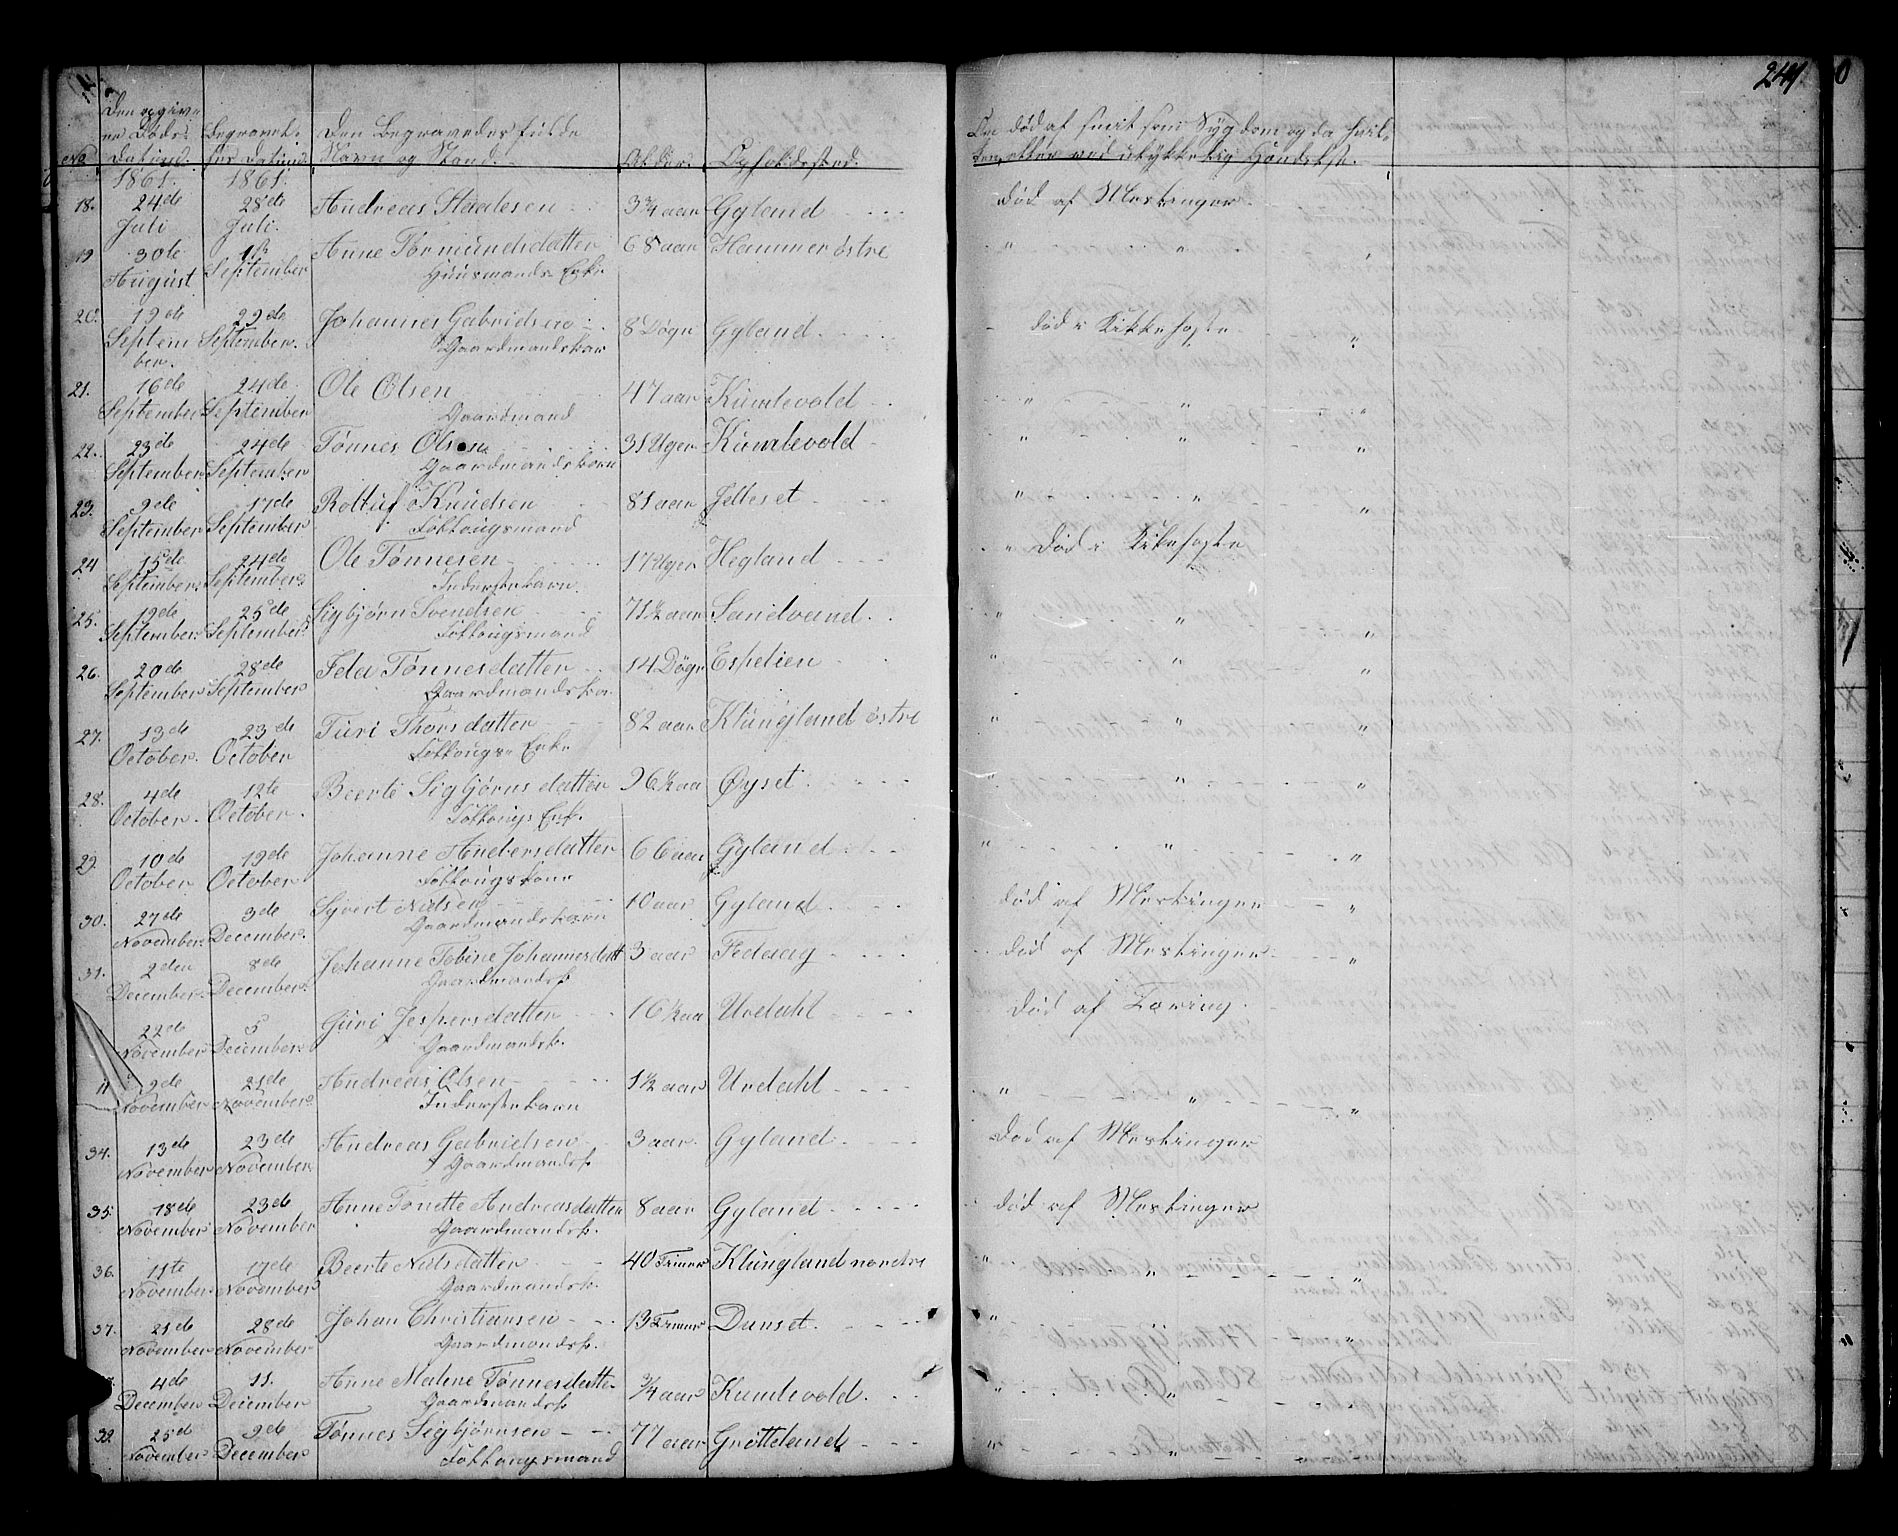 241
Den opgiv-
ne Døds- Begravel- Den Begravedes fulde
No Datum. ses Datum Navn og Stand. Alder. Opholdssted. Om død af smitsom Sygdom og da hvil-
ken, eller ved ulykkelig Hændelse.
1861. 1861.
18. 24de Juli 28de Juli. Andreas Staalesen 3¾ aar Gyland død af Meslinger.
19 30te August 1ste September Anne Tormundsdatter 68 aar Hammer østre " "
Huusmands Enke
20. 19de September. 29de September. Johannes Gabrielsen 8 Døgn Gyland. død i Kikhoste "
Gaardmandsbarn
21. 16de September 24de September Ole Olsen 47 aar Kumlevold " " "
Gaardmand
22. 23de September 24de September. Tønnes Olsen 31 Uger Kumlevold " " "
Gaardmandsbarn
23. 9de September 17de September Knudsen 81 aar Jelleset " " "
Føllougsmand
24 15de September. 24de September. Ole Tønnesen 17 Uger Hegland " Død i Kikhoste
Inderstebarn.
25. 19de September. 25de September. Sigbjørn Svendsen 71½ aar Sandvand. " " "
Føllougsmand
26. 20de September 28de September Ida Tønnesdatter 14 Døgn Espelien " " "
Gaardmandsba.
27. 13de October. 23de October Turi Thorsdatter 82 aar Klungland østre " " "
Føllougs Enke
28. 4de October. 12te October. Beerte Sigbjørnsdatter 96½ aa Øyset " "
Føllougs Enk.
29. 10de October 19de October Johanne Andersdatter 66 aar Gyland " " "
Føllougskone
30. 27de November. 3de December. Syvert Nielsen 10 aar Gyland død af Meslinger "
Gaardmandsbarn
31. 2den December. 8de December. Johanne Tobine Johannesdatt 3 aar Fedaag død af Meslinger "
Gaardmandsb
22de November 5 December. Guri Jespersdatter 16½ aa Urdahl død af Tæring.
Gaardmandsb.
" 9de November 21de November. Andreas Olsen 1½ aar Urdahl " " "
Inderstebarn
34. 13de November 23de November. Andreas Gabrielsen 3 aar. Gyland død af Meslinger
Gaardmandsb
35. 18de November 23de November Anne Tonette Andreasdatter 8 aar Gyland død af Meslinger
Gaardmandsb.
36. 11te November. 17de November. Beerte Nielsdatter 40 Timer Klungland nordre " " "
Gaardmandsb.
37. 21de November 28de November Johan Christiansen 13 Timer Dunset. " "
Gaardmandsb.
4de December 11. December Anne Malene Tønnesdatte ¾ aar Kumlevold. " "
Gaardmandsb
39. 25d November. 9de December. Tønnes Sigbjørnsen 77 aar Grøtteland " "
Føllougsmand